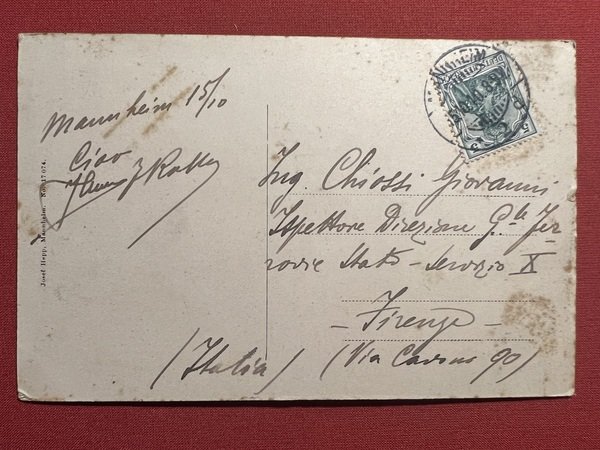 Mannheim 15/10
Ciao
Josef Hepp, Mannheim. No. 17074.
Ing. Chiossi Giovanni
Ispettore Direzione G.le Fer
rovie Stato - Servizio X
- Firenze -
(Via Cavour 90)
(Italia)
5 5